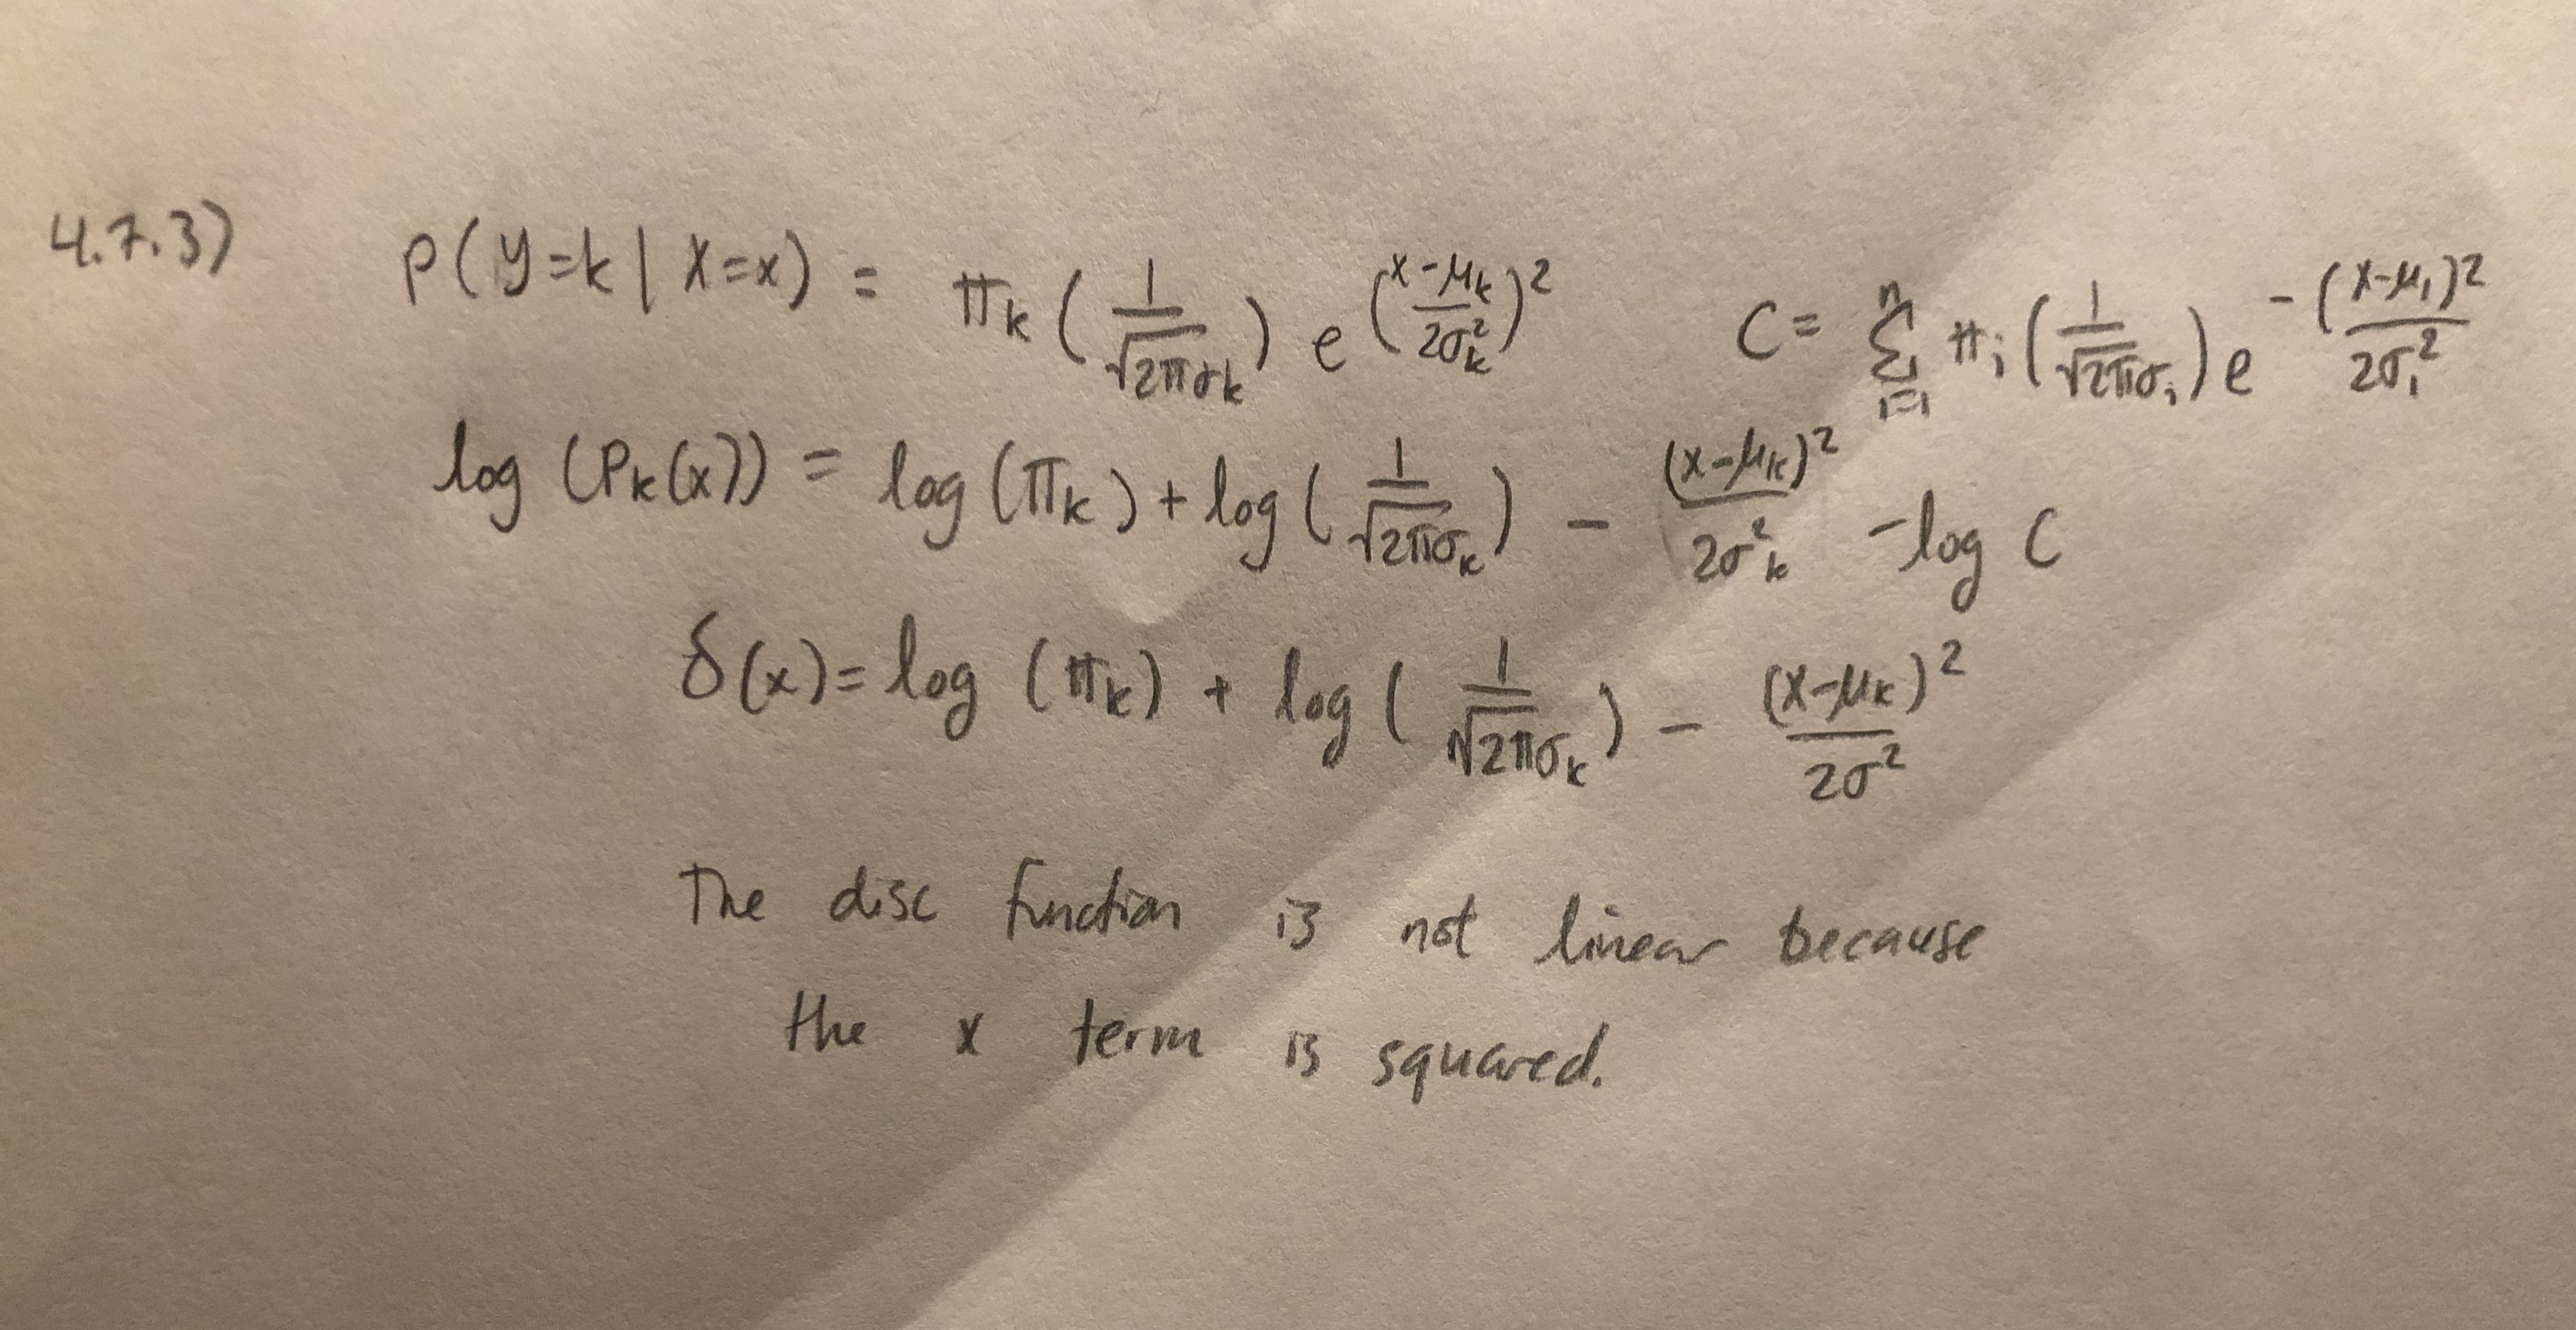 4.7.3) P(y=k | X=x) = π_k (1/√2πσk) e^(x-μ_k/2σ_k²)² C = Σ_{i=1}^n π_i (1/√2πσ_i) e^-(x-μ_i)²/2σ_i²
log (P_k(x)) = log (π_k) + log (1/√2πσ_k) - (x-μ_k)²/2σ²_k - log C
δ(x) = log (π_k) + log (1/√2πσ_k) - (x-μ_k)²/2σ²
The disc function is not linear because
the x term is squared.